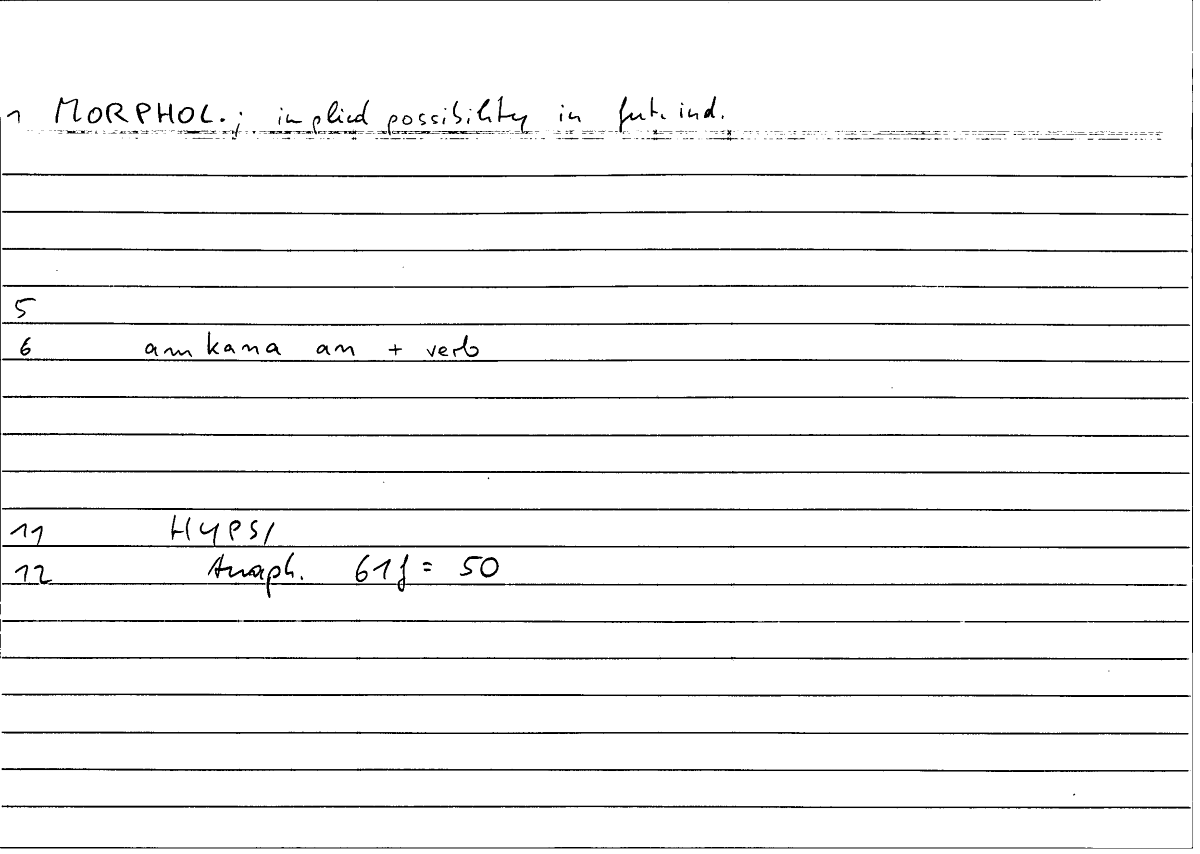 1 MORPHOL.; implied possibility in fut. ind.
5
6 amkana an + verb
11 HYPS/
12 Anaph. 61f = 50